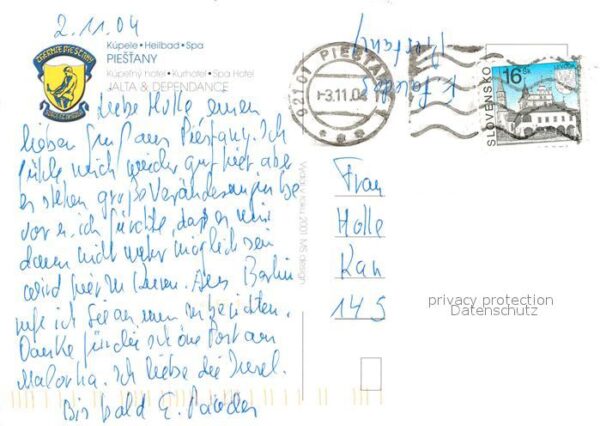 2.11.04
THERMIE PIEŠŤANY
Kúpele • Heilbad • Spa
PIEŠŤANY
Kúpeľný hotel • Kurhotel • Spa Hotel
JALTA & DEPENDANCE
Liebe Holle einen
lieben Gruß aus Piéstany. Ich
fühle mich wieder gut hier aber
es stehen große Veränderungen be
vor u. ich fürchte, daß es mir
dann nicht mehr möglich sein
wird hier zu kuren. Aus Berlin
rufe ich Sie an um zu berichten.
Danke für die schöne Post aus
Mallorka. Ich liebe die Insel.
Bis bald E.
Vydalo: 2001 MS design
921 01 PIEŠŤANY 1
-3.11.04
Piestany
SLOVENSKO
16 Sk
LEVOČA
Frau
Holle
Kan
145
privacy protection
Datenschutz